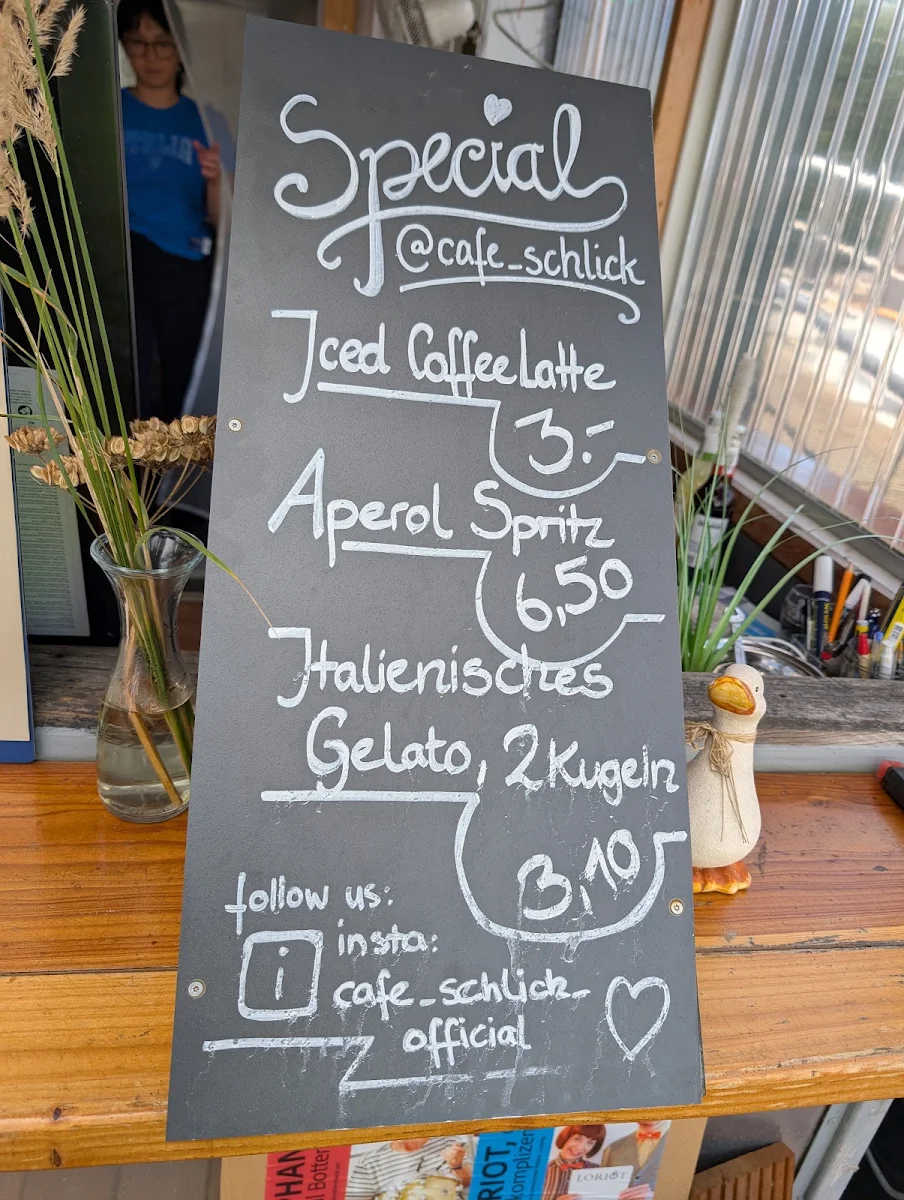 Special
@cafe_schlick
Iced Coffee Latte
3.-
Aperol Spritz
6,50
Italienisches
Gelato, 2 Kugeln
3,10
follow us:
i insta:
cafe_schlick_
official
LORIOT